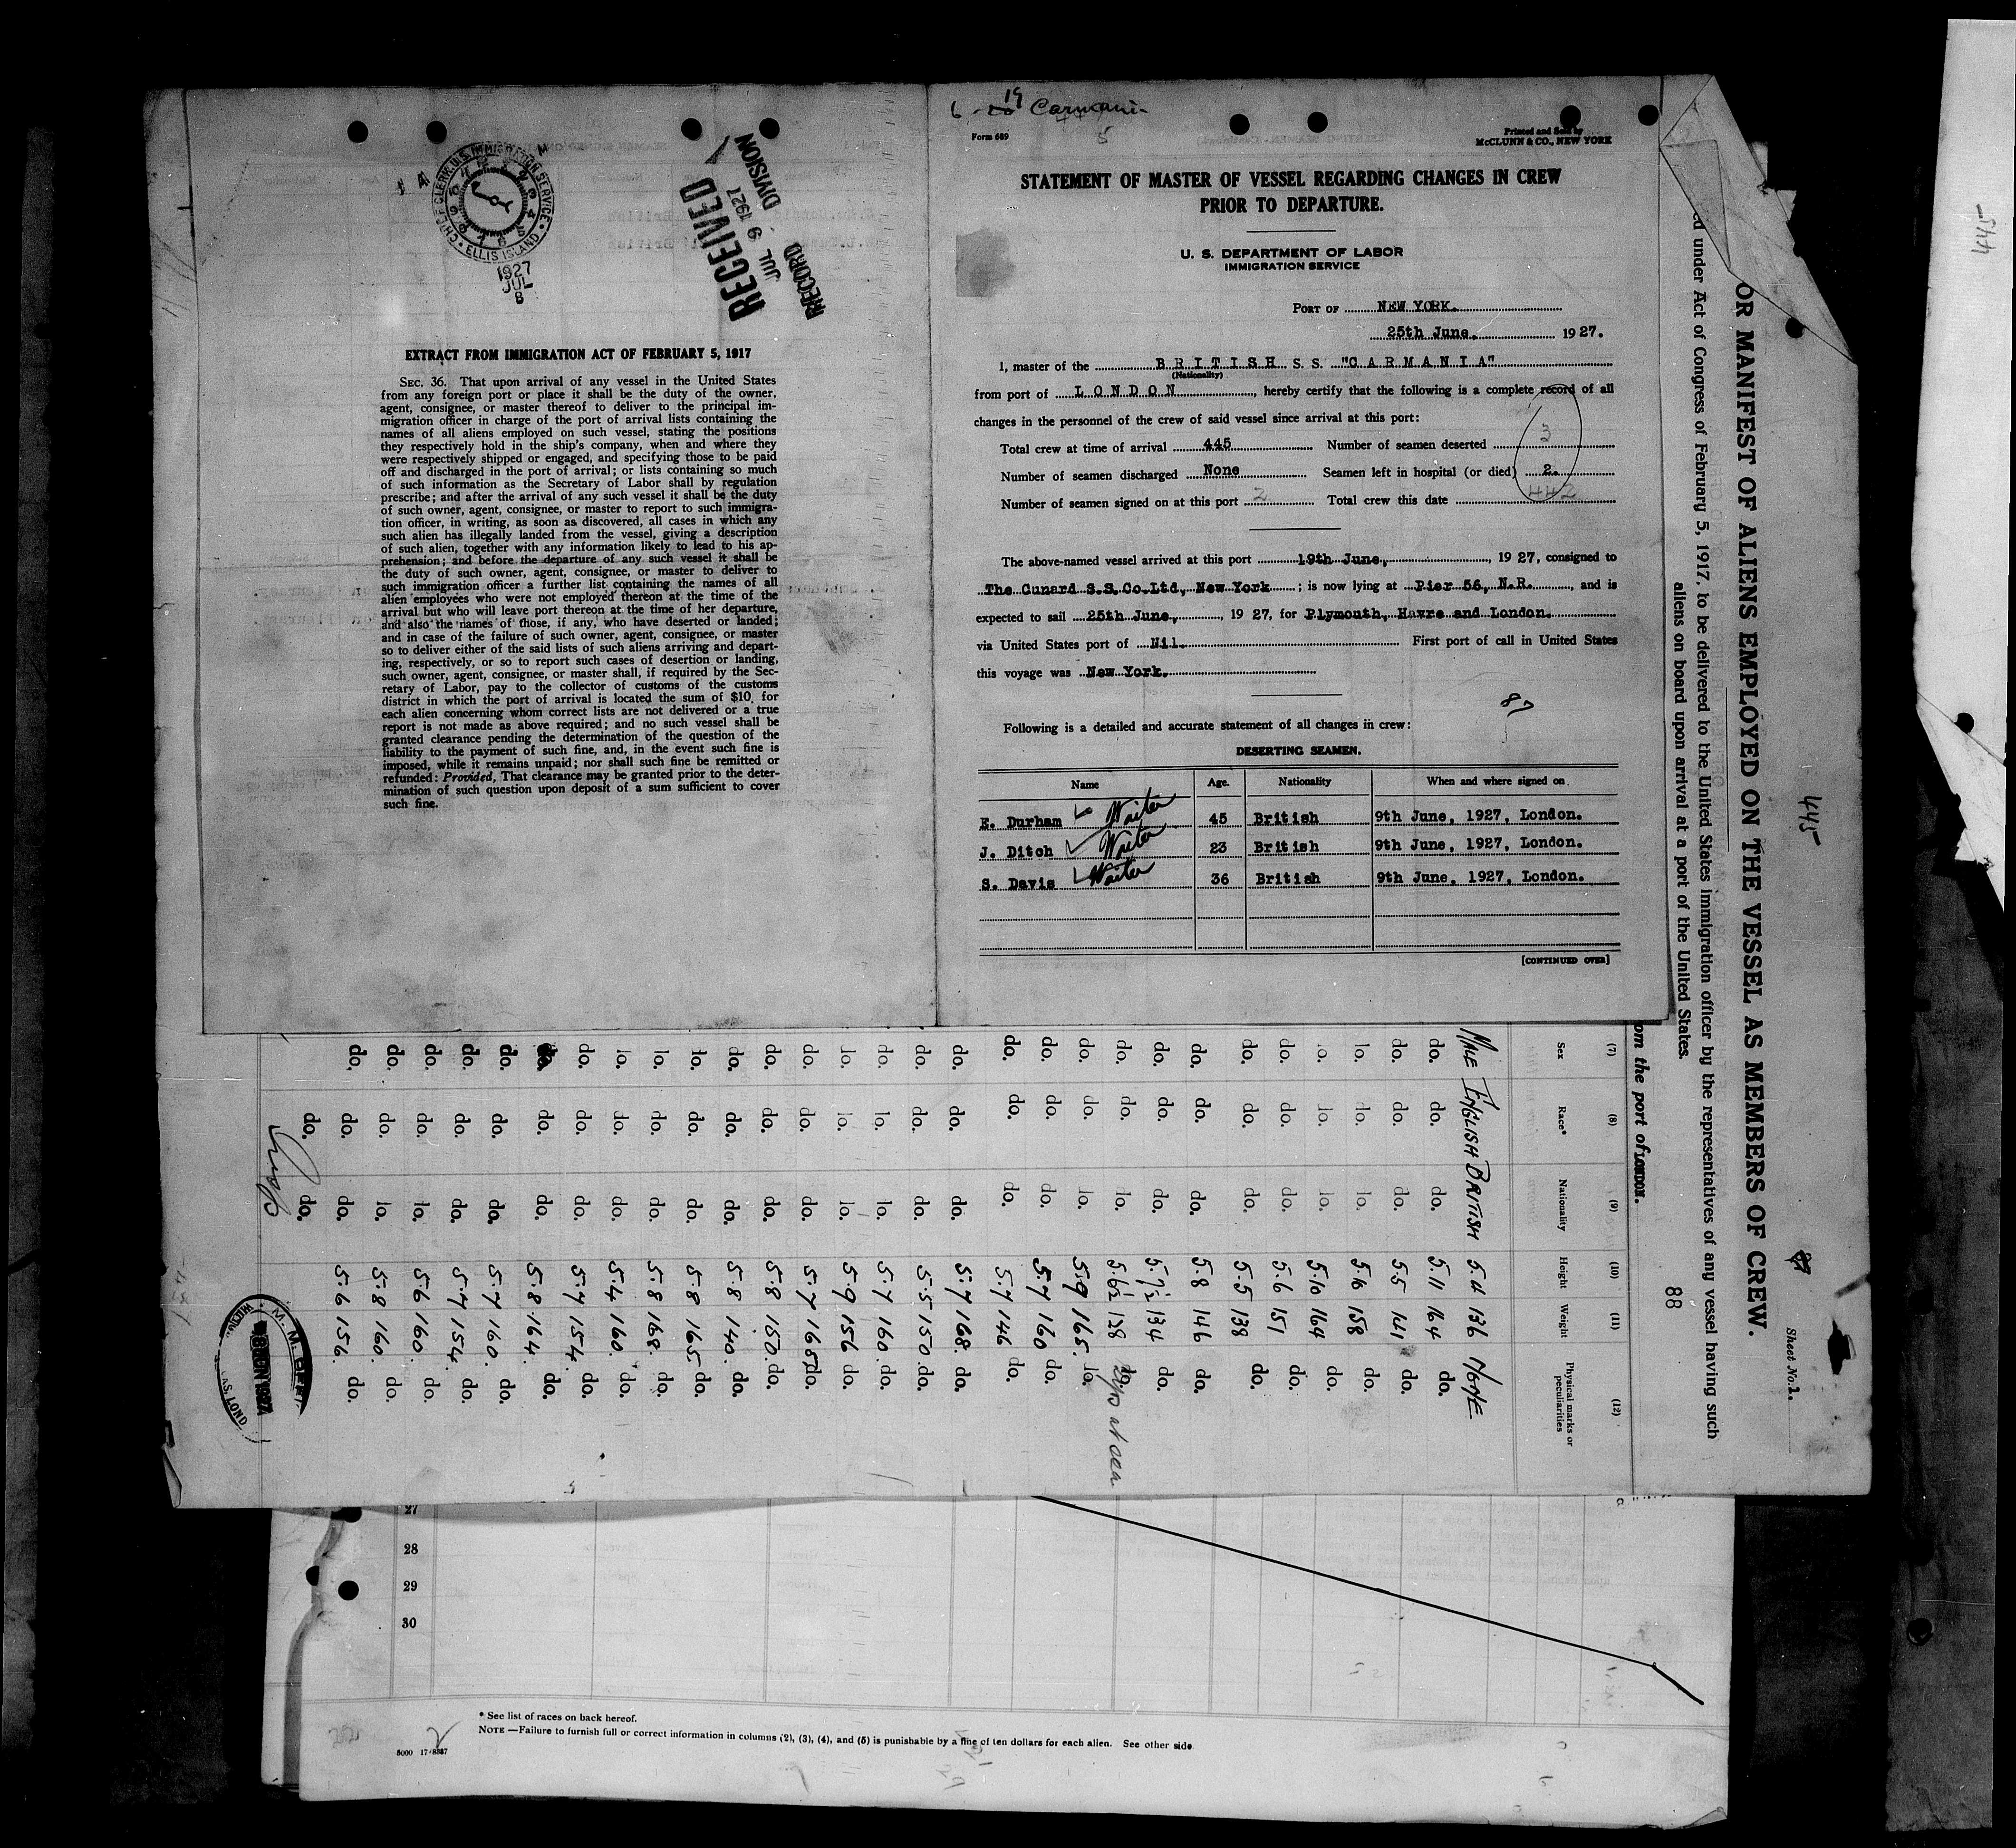 CHIEF CLERK, U.S. IMMIGRATION SERVICE
ELLIS ISLAND
1927
JUL
8
RECEIVED
JUL 9 1927
RECORD DIVISION
EXTRACT FROM IMMIGRATION ACT OF FEBRUARY 5, 1917
SEC. 36. That upon arrival of any vessel in the United States
from any foreign port or place it shall be the duty of the owner,
agent, consignee, or master thereof to deliver to the principal im-
migration officer in charge of the port of arrival lists containing the
names of all aliens employed on such vessel, stating the positions
they respectively hold in the ship's company, when and where they
were respectively shipped or engaged, and specifying those to be paid
off and discharged in the port of arrival; or lists containing so much
of such information as the Secretary of Labor shall by regulation
prescribe; and after the arrival of any such vessel it shall be the duty
of such owner, agent, consignee, or master to report to such immigra-
tion officer, in writing, as soon as discovered, all cases in which any
such alien has illegally landed from the vessel, giving a description
of such alien, together with any information likely to lead to his ap-
prehension; and before the departure of any such vessel it shall be
the duty of such owner, agent, consignee, or master to deliver to
such immigration officer a further list containing the names of all
alien employees who were not employed thereon at the time of the
arrival but who will leave port thereon at the time of her departure,
and also the names of those, if any, who have deserted or landed;
and in case of the failure of such owner, agent, consignee, or master
so to deliver either of the said lists of such aliens arriving and depart-
ing, respectively, or so to report such cases of desertion or landing,
such owner, agent, consignee, or master shall, if required by the Sec-
retary of Labor, pay to the collector of customs of the customs
district in which the port of arrival is located the sum of $10 for
each alien concerning whom correct lists are not delivered or a true
report is not made as above required; and no such vessel shall be
granted clearance pending the determination of the question of the
liability to the payment of such fine, and, in the event such fine is
imposed, while it remains unpaid; nor shall such fine be remitted or
refunded: Provided, That clearance may be granted prior to the deter-
mination of such question upon deposit of a sum sufficient to cover
such fine.
6 - 19 Carmania
Form 689
5
Printed and Sold by
McCLUNN & CO., NEW YORK
STATEMENT OF MASTER OF VESSEL REGARDING CHANGES IN CREW
PRIOR TO DEPARTURE.
U. S. DEPARTMENT OF LABOR
IMMIGRATION SERVICE
PORT OF NEW YORK.
25th June, 1927.
I, master of the BRITISH S. S. "CARMANIA"
(Nationality)
from port of LONDON, hereby certify that the following is a complete record of all
changes in the personnel of the crew of said vessel since arrival at this port:
Total crew at time of arrival 445 Number of seamen deserted 3
Number of seamen discharged None Seamen left in hospital (or died) 2.
Number of seamen signed on at this port 2 Total crew this date 442
The above-named vessel arrived at this port 19th June, 1927, consigned to
The Cunard S.S.Co.Ltd, New York; is now lying at Pier 56, N.R., and is
expected to sail 25th June, 1927, for Plymouth, Havre and London.
via United States port of Nil. First port of call in United States
this voyage was New York.
87
Following is a detailed and accurate statement of all changes in crew:
DESERTING SEAMEN.
Name Age. Nationality When and where signed on
E. Durham Waiter 45 British 9th June, 1927, London.
J. Ditch Waiter 23 British 9th June, 1927, London.
S. Davis Waiter 36 British 9th June, 1927, London.
[CONTINUED OVER]
445
445
Sheet No. 1.
OR MANIFEST OF ALIENS EMPLOYED ON THE VESSEL AS MEMBERS OF CREW.
under Act of Congress of February 5, 1917, to be delivered to the United States immigration officer by the representatives of any vessel having such
aliens on board upon arrival at a port of the United States.
88
om the port of LONDON.
(7) (8) (9) (10) (11) (12)
Sex Race* Nationality Height Weight Physical marks or peculiarities
MALE ENGLISH BRITISH 5.4 136 NONE
do. do. do. 5.11 164 do.
do. do. do. 5.5 141 do.
lo. do. lo. 5.10 158 do.
lo. lo. lo. 5.10 164 do.
do. do. do. 5.6 151 do.
do. do. do. 5.5 138 do.
do. do. do. 5.8 146 do.
do. do. do. 5.7½ 134 do.
do. do. lo. 5.6½ 128
do. lo. lo. 5.9 165. lo.
do. do. do. 5.7 160 do.
do. do. do. 5.7 146 do.
do. do. do. 5.7 168. do.
do. do. do. 5.5 150. do.
do. lo. lo. 5.7 160. do.
lo. lo. lo. 5.9 156 do.
do. do. do. 5.7 165. do.
do. do. do. 5.8 150. do.
do. do. do. 5.8 140. do.
lo. do. do. 5.8 165. do.
lo. do. do. 5.8 168. do.
lo. do. do. 5.4 160. do.
do. do. do. 5.7 154. do.
do. do. do. 5.8 164. do.
do. do. do. 5.7 160. do.
do. do. do. 5.7 154. do.
do. do. lo. 5.6 160. do.
do. do. lo. 5.8 160. do.
do. do. do. 5.6 156. do.
do. do.
27
28
29
30
* See list of races on back hereof.
NOTE —Failure to furnish full or correct information in columns (2), (3), (4), and (5) is punishable by a fine of ten dollars for each alien. See other side.